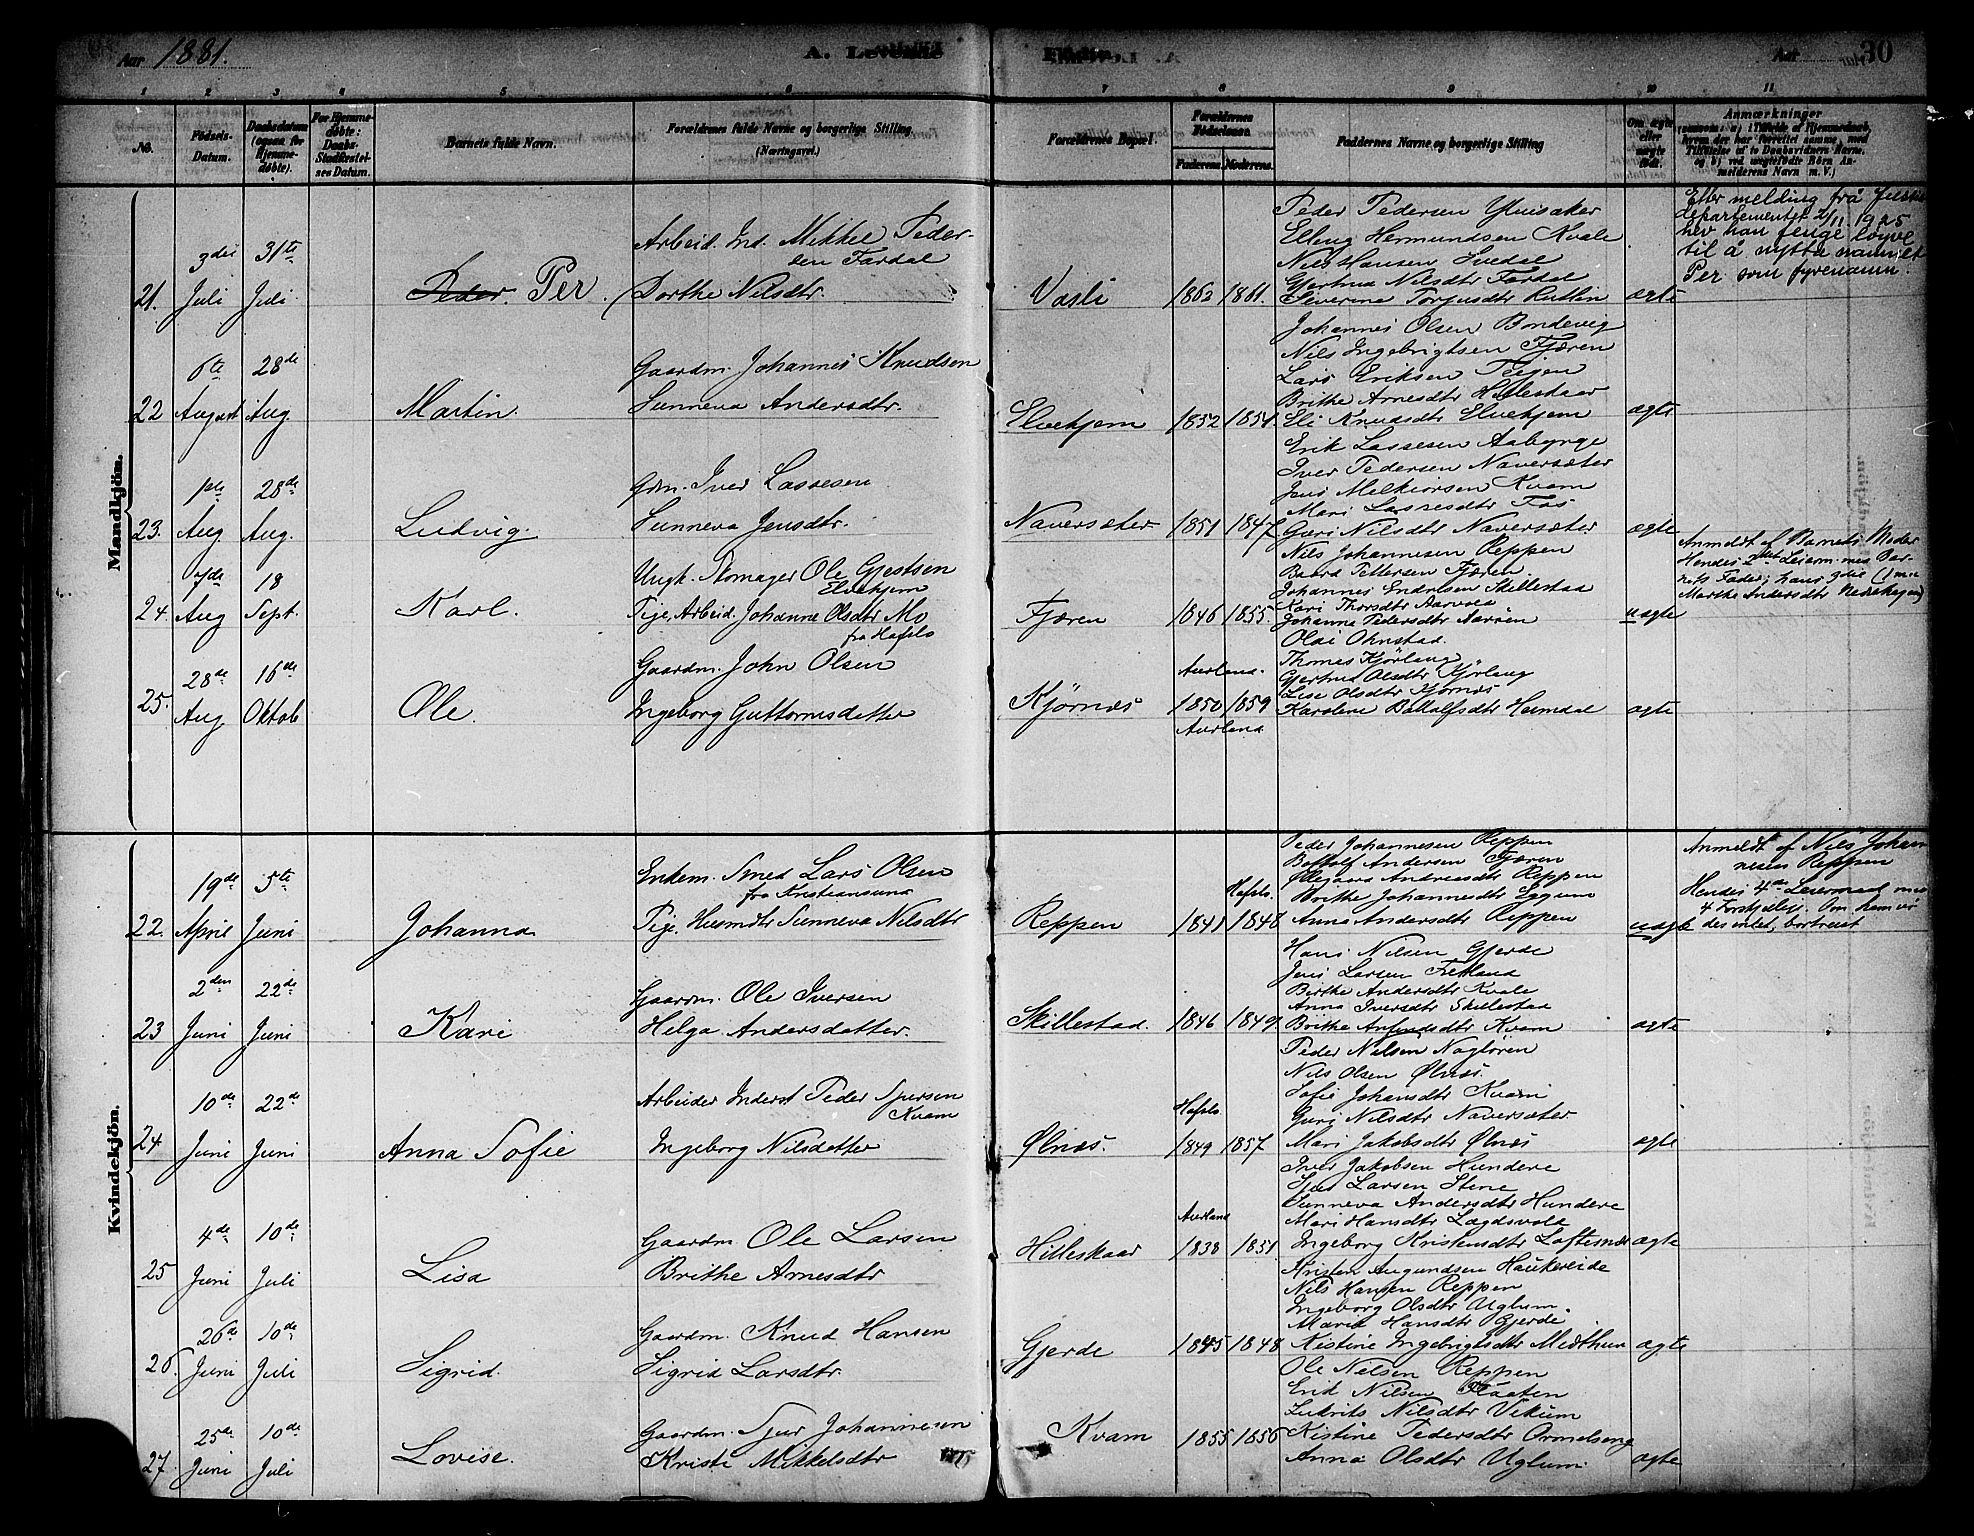 Aar 1881.
A. Levende
Fødte.
Aar
30
1 2 3 4 5 6 7 8 9 10 11
No.
Födsels-Datum.
Daabsdatum (ogsaa for Hjemmedöbte).
For Hjemmedöbte: Daabs-Stadfæstelses Datum.
Barnets fulde Navn.
Forældrenes fulde Navne og borgerlige Stilling (Næringsvei.)
Forældrenes Bopæl.
Forældrenes Födselsaar
Faderens. Moderens.
Faddernes Navne og borgerlige Stilling
Om ægte eller uægte födt.
Anmærkninger
Mandkjön.
21. 3die Juli 31te Juli
Peder. Per.
Arbeid. Ind. Mikkel Pedersen Fardal
Dorthe Nilsdtr.
Vasli 1862 1861.
Peder Pedersen Ylvisaker
Elling Hermundsen Kvale
Nils Hansen Svedal
Gjertrud Nilsdtr Fardal
Severine Torjusdtr Rutlin
ægte
Etter melding frå Justisdepartementet 2/11 1925
hev han fenge löyve
til å nytta namnet
Per som fyrenamn.
22 6te August 28de Aug.
Martin.
Gaardm. Johannes Knudsen
Sunneva Andersdtr.
Elvekjem 1852 1854.
Johannes Olsen Bondevig
Nils Ingebrigtsen Fjæren
Lars Eriksen Teigen
Brithe Arnesdtr Hilleskaar
Eli Knudsdtr Elvekjem
ægte
23. 1ste Aug. 28de Aug.
Ludvig.
Gdm. Iver Lassesen
Sunneva Jensdtr.
Naversæter 1851 1847
Erik Lassesen Aaberge
Iver Pedersen Naversæter
Jens Melkiorsen Kvam
Mari Lassesdtr Fos
Guri Nilsdtr Naversæter
ægte
24. 7de Aug 18 Sept.
Karl.
Ungk. Skomager Ole Gjestsen Elvekjem
Pige, Arbeid. Johanne Olsdtr Mo
fra Hafslo
Fjæren 1846 1855.
Nils Johannesen Reppen
Baard Pettersen Fjæren.
Johannes Endresen Skillestaa
Kari Thorsdtr Aarvold
Johanna Pedersdtr
uægte
Anmeldt af Barnets Moder
Hendes 2det Leierm. med Barnets Fader, hans 3die (1 med
Marthe Andersdtr Nedrehagen)
25. 28de Aug 16de Oktob
Ole.
Gaardm. John Olsen
Ingeborg Guttormsdatter
Kjørnæs
Aurland.
1850 1859
Aurland
Olai Ohnstad.
Thomes Kjörlaug
Gjertrud Olsdtr Kjörlaug
Lise Olsdtr Kjørnæs
Karoline Bottolfsdtr Heimdal
ægte
Kvindekjön.
22. 19de April 5te Juni
Johanna
Enkem. Smed Lars Olsen
fra Kristiansund
Pige. Husmdtr Sunneva Nilsdtr
Reppen
Hafslo
1841 1848
Peder Johannesen Reppen
Bottolf Andersen Fjæren
Ølegaard Andreasdtr Reppen
Brithe Johannesdtr Eggum
Anna Andersdtr Reppen
uægte
Anmeldt af Nils Johannesen Reppen
Hendes 4de Leiermaal med
4 Forskjellige. Om ham vides intet, bortreist
23 2den Juni 22de Juni
Kari
Gaardm. Ole Iversen
Helga Andersdatter.
Skillestad. 1846 1849
Hans Nilsen Gjerde
Jens Larsen Fretland
Birthe Andersdtr Kvale
Anna Iversdtr Skillestaa
Brithe Anfindsdtr Kvam
ægte
24 10de Juni 22de Juni
Anna Sofie
Arbeider Inderst Peder Sjursen Kvam
Ingeborg Nilsdatter
Ølnæs.
Hafslo
1849 1857
Peder Nilsen Nagløren
Nils Olsen Ølnæs.
Sofie Johansdtr Kvam
Guri Nilsdtr Naversæter
Mari Jakobsdtr Ølnæs
ægte
25 4de Juni 10de Juli
Lisa
Gaardm Ole Larsen
Brithe Arnesdtr
Hilleskaar
Aurland
1838 1851
Iver Jakobsen Hundere
Sjur Larsen Stene
Sunneva Andersdtr Hundere
Mari Hansdtr Lægdsvold
Ingeborg Kristensdtr Loftesnæs
ægte
26. 26de Juni 10de Juli
Sigrid.
Gaardm. Knud Hansen
Sigrid Larsdtr.
Gjerde 1845 1848
Kristen Augundsen Haukereide
Nils Hansen Reppen
Ingeborg Olsdtr Uglum.
Maria Hansdtr Gjerde
Kistine Ingebrigtsdtr Midthun
ægte
27. 25de Juni 10de Juli
Lovise.
Gaardm. Sjur Johannesen
Kristi Mikkelsdtr
Kvam 1855 1856
Ole Nilsen Reppen
Erik Nilsen Flaaten
Lukrits Nilsdtr Vikum
Kistine Pedersdtr Ormelseng
Anna Olsdtr Uglum.
ægte